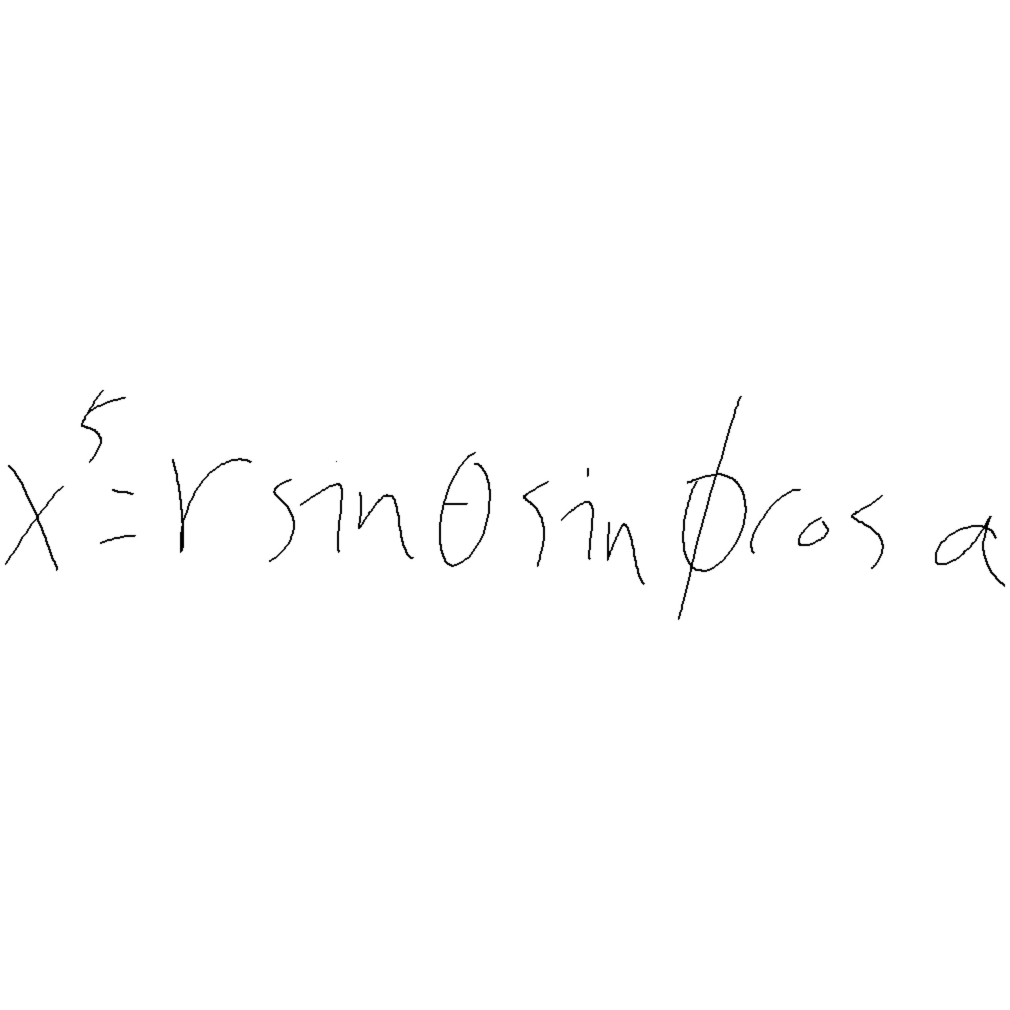 x⁵ = r sin θ sin ϕ cos a